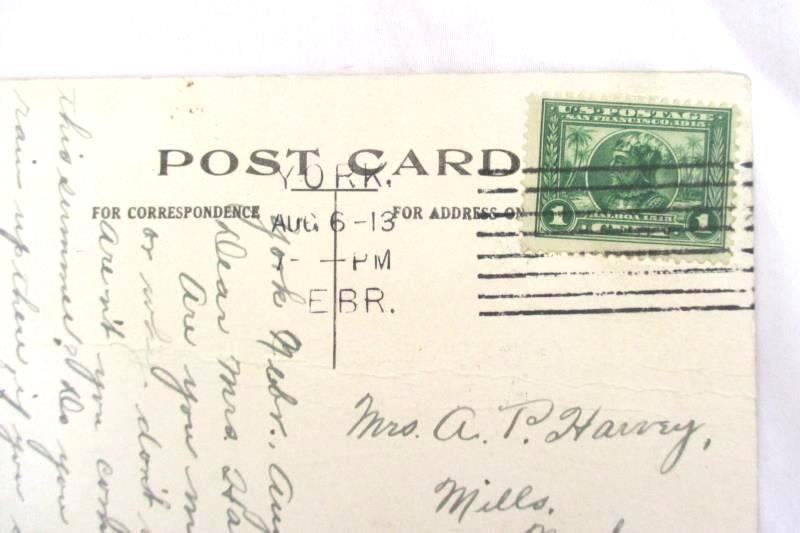 POST CARD
FOR CORRESPONDENCE
FOR ADDRESS ON
YORK.
AUG 6-13
- -PM
EBR.
U.S. POSTAGE
SAN FRANCISCO, 1915
BALBOA 1513
1 CENT 1
York Nebr., Aug
Dear Mrs. Ha
Are you m
or don't
Aren't you com
this summer? Do you
rain up there if you
Mrs. A. P. Harvey,
Mills.